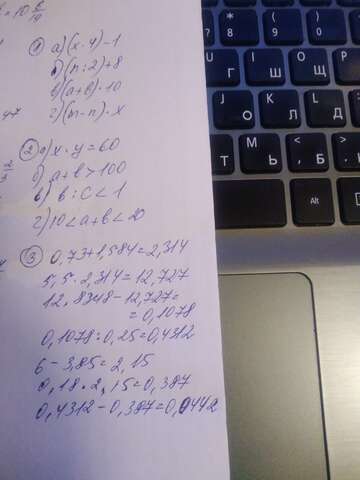 = 10
① а) (x · y) − 1
б) (n : 2) + 8
в) (a + b) · 10
г) (m − n) · x
47
② а) x · y = 60
б) a + b > 100
в) b : c < 1
г) 10 < a + b < 20
③ 0,73 + 1,584 = 2,314
5,5 · 2,314 = 12,727
12,8348 − 12,727 =
= 0,1078
0,1078 : 0,25 = 0,4312
6 − 3,85 = 2,15
0,18 · 2,15 = 0,387
0,4312 − 0,387 = 0,0442
* 8
( 9
) 0
Г U
Ш I
Щ O
О J
Л K
Д L
Ь M
Б
Alt